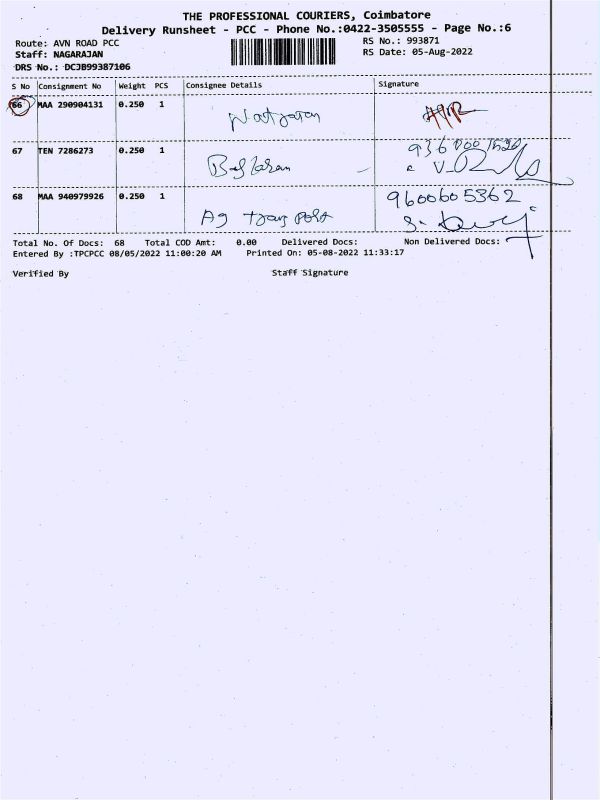 THE PROFESSIONAL COURIERS, Coimbatore
Delivery Runsheet - PCC - Phone No.:0422-3505555 - Page No.:6
Route: AVN ROAD PCC
RS No.: 993871
Staff: NAGARAJAN
RS Date: 05-Aug-2022
DRS No.: DCJB99387106
S No Consignment No Weight PCS Consignee Details Signature
66 MAA 290904131 0.250 1
67 TEN 7286273 0.250 1
68 MAA 940979926 0.250 1 9600605362
Total No. Of Docs: 68 Total COD Amt: 0.00 Delivered Docs: Non Delivered Docs:
Entered By :TPCPCC 08/05/2022 11:00:20 AM Printed On: 05-08-2022 11:33:17
Verified By Staff Signature